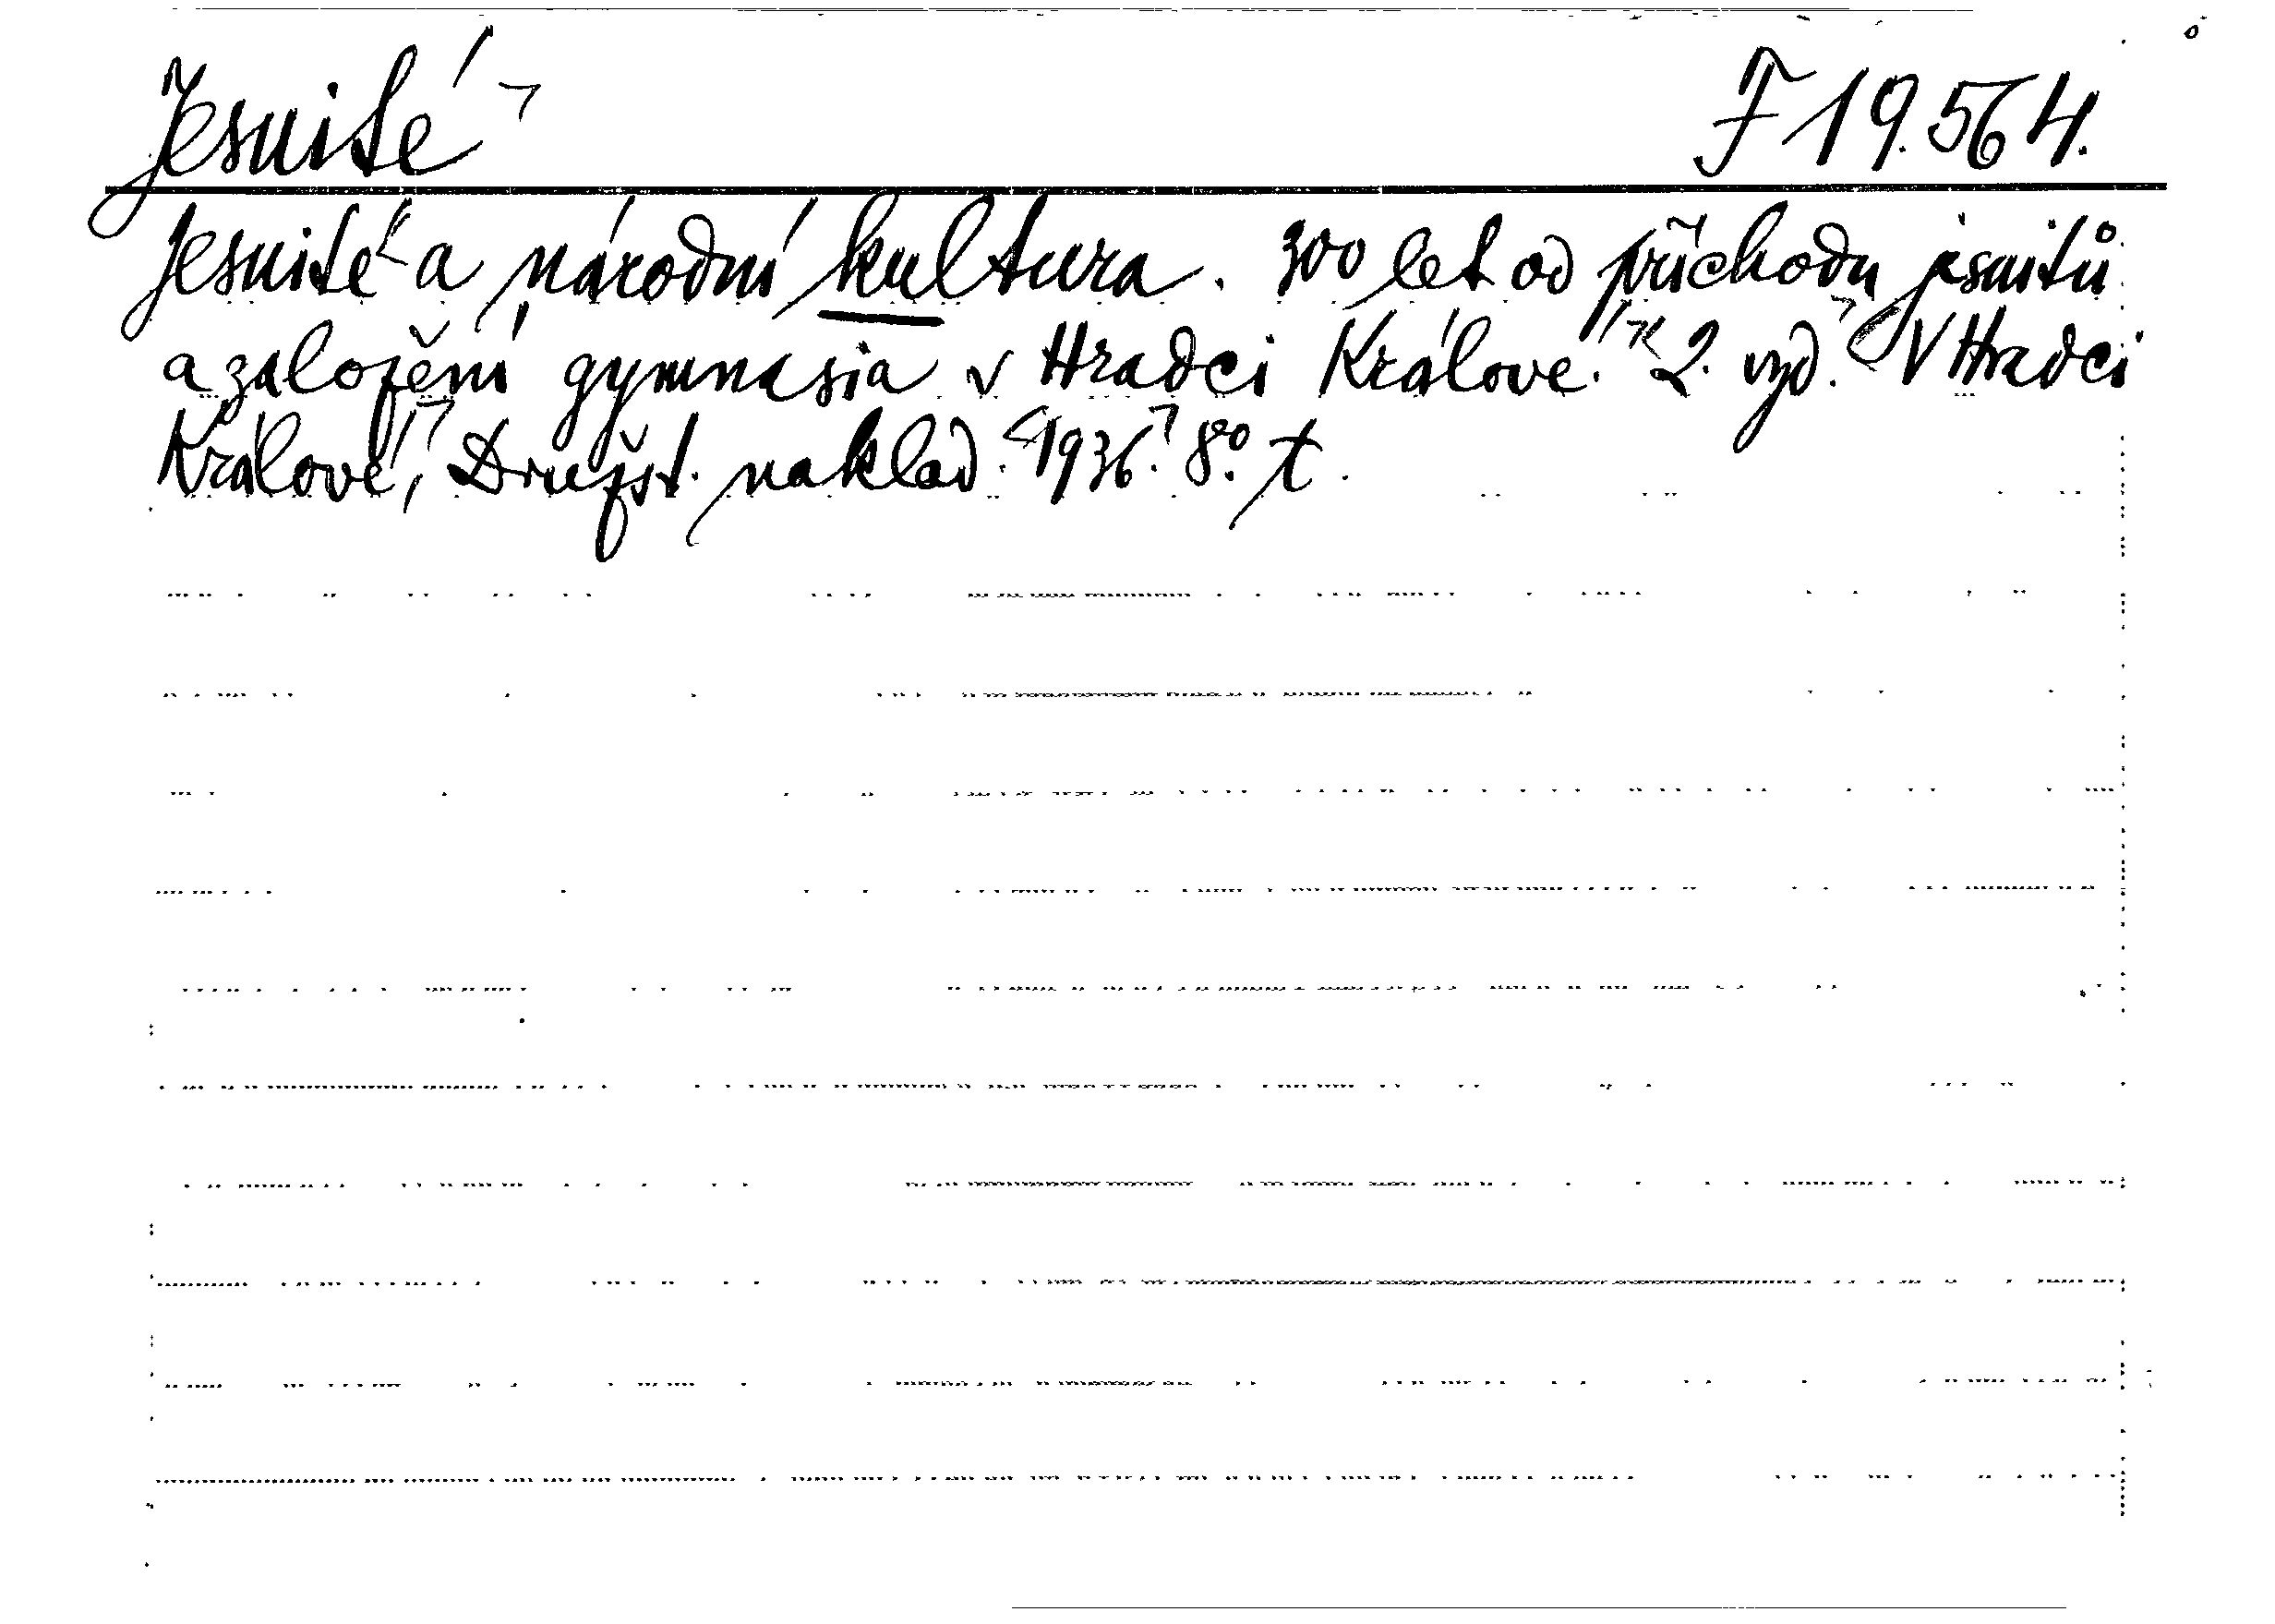 Jesuité F 19.564.
Jesuité a národní kultura. 300 let od příchodu jesuitů
a založení gymnasia v Hradci Králové. 2. vyd. V Hradci
Králové, Družst. naklad. 1936. 8° t.